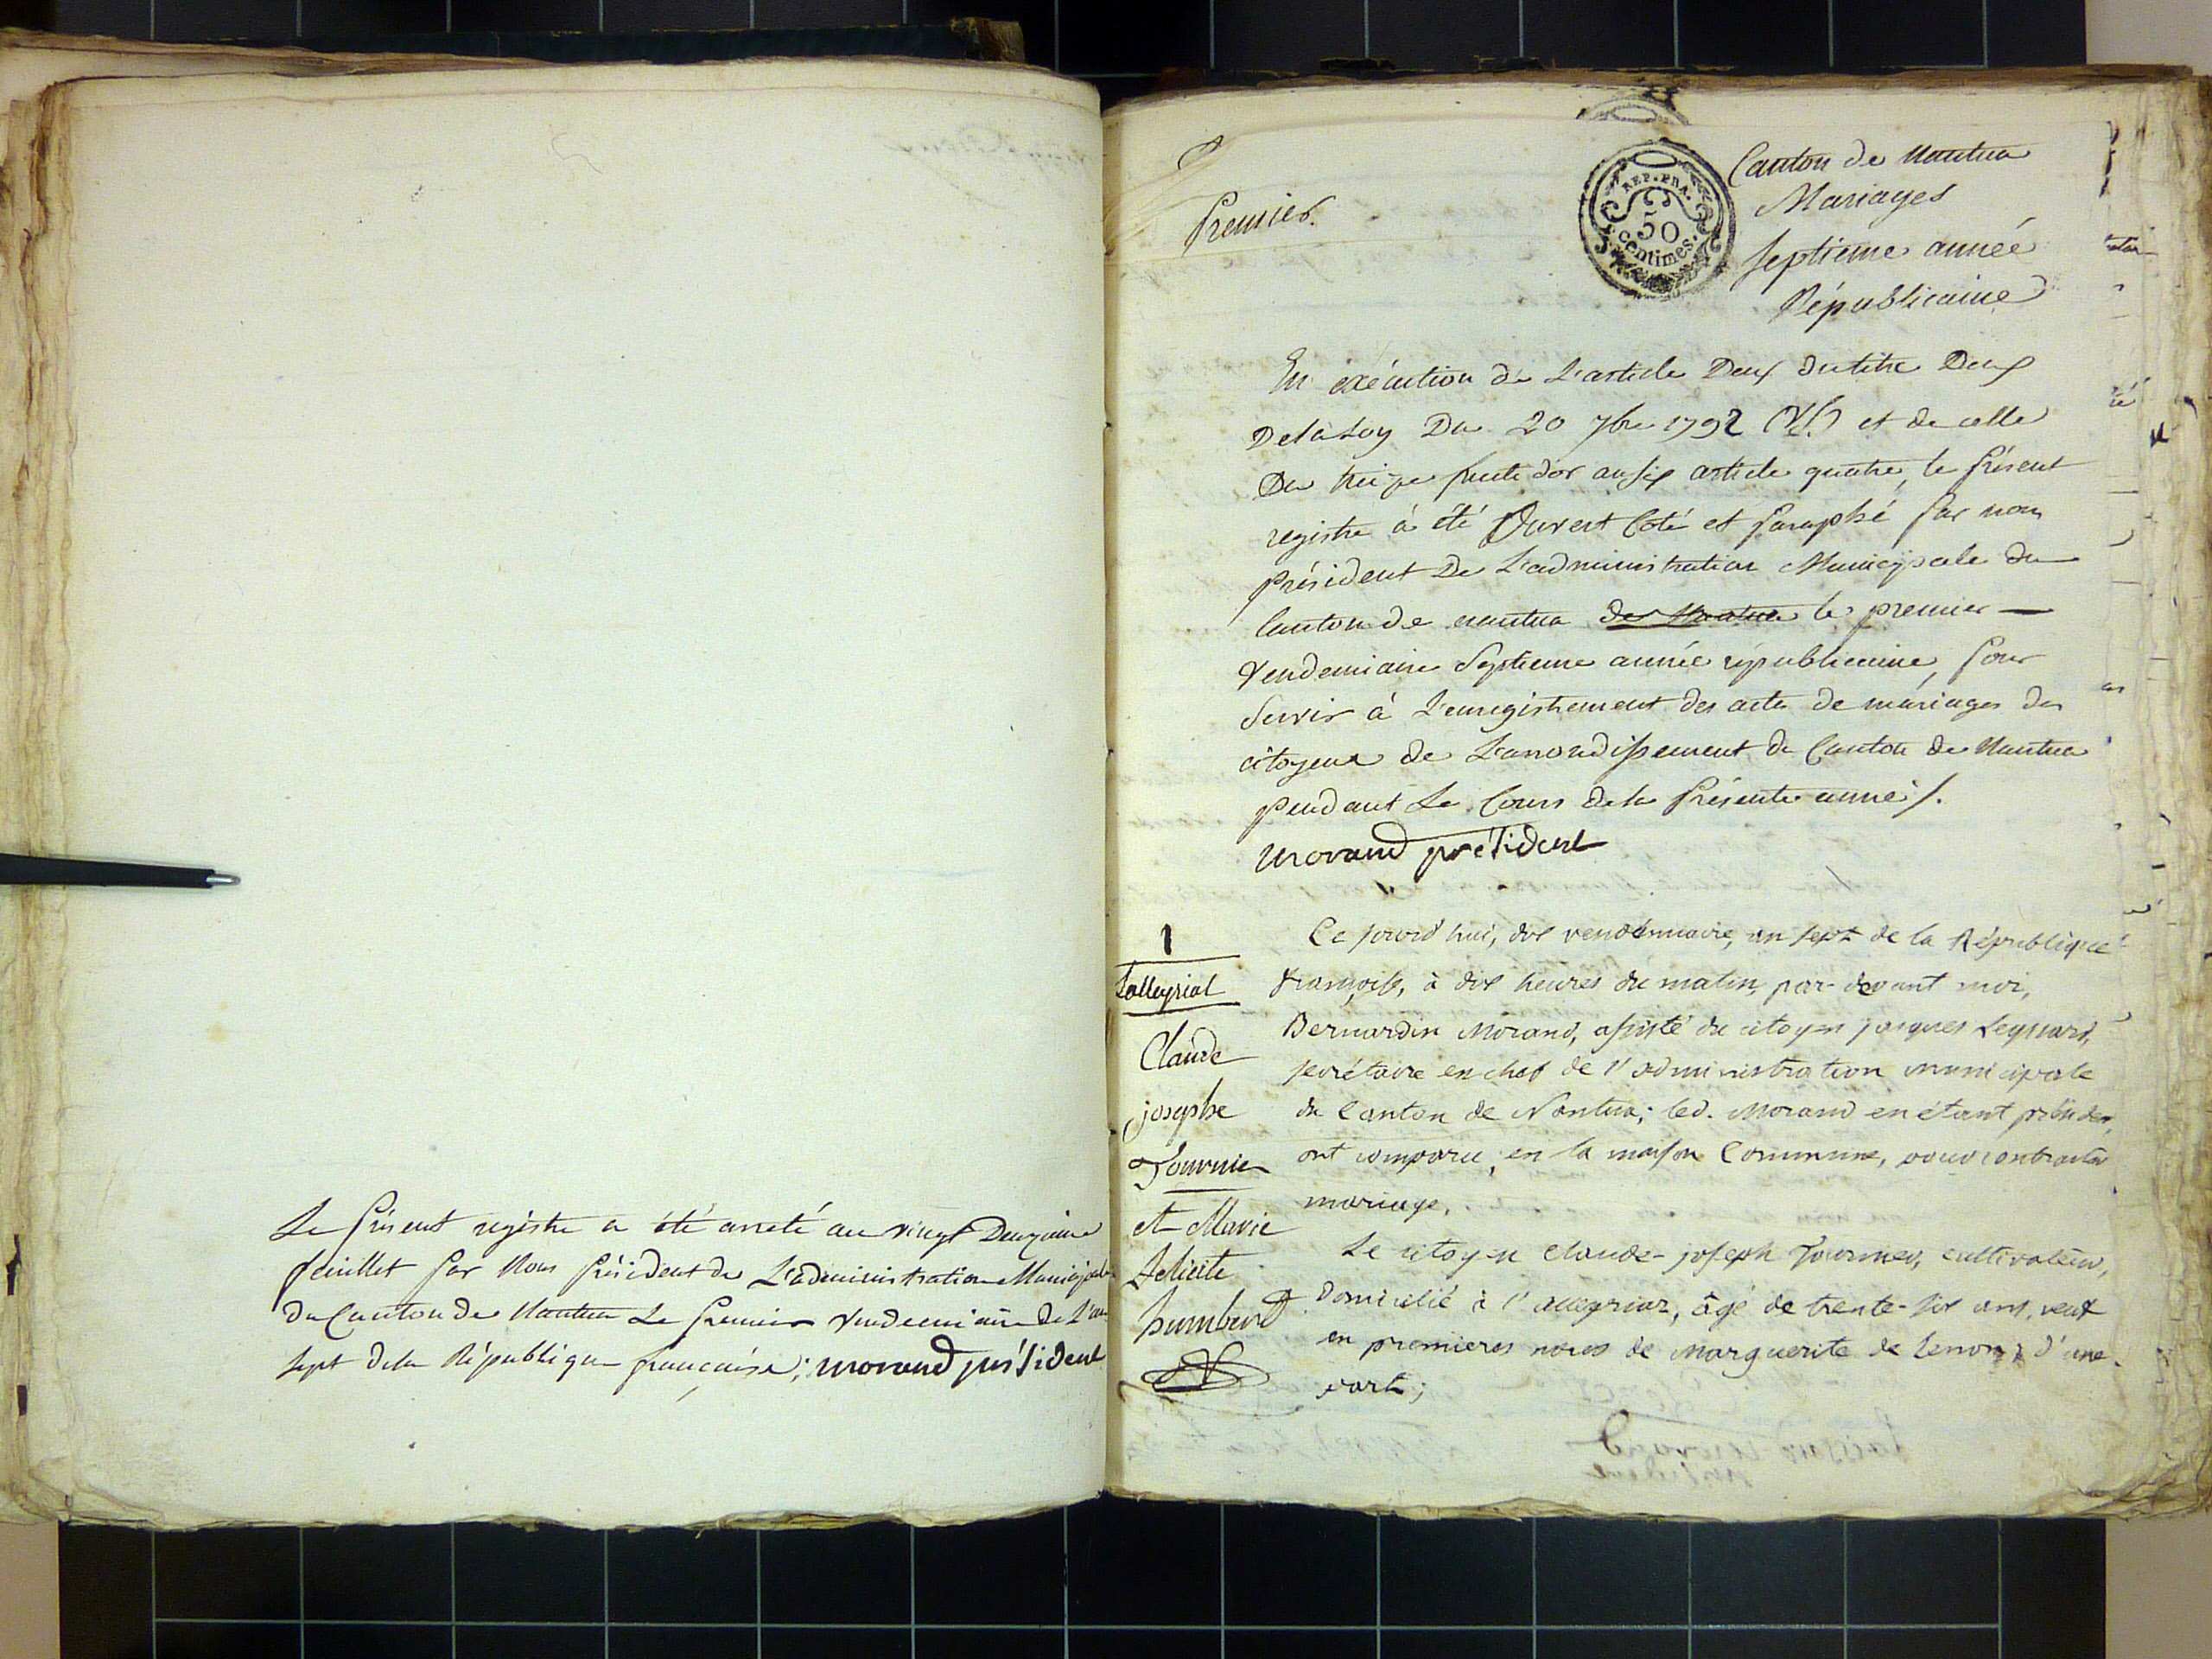 Le présent registre a été arreté au vingt Deuxième
feuillet par Nous président de L'administration Municipale
du Canton de Nantua Le premier Vendemiaire de L'an
sept dela République française; morand président
Premier.
REP. FRA.
50
centimes.
Canton de Nantua
Mariages
septieme année
Républicaine
En exécution de L'article Deux du titre Deux
De la Loy Du 20 7bre 1792 (VS) et de celle
Du treize fructidor an six article quatre, le présent
registre à été Ouvert Coté et paraphé par nous
président De L'administration Municipale du
Canton de nantua de Nantua le premier
Vendemiaire Septieme année républicaine, pour
servir à L'enregistrement des actes de mariages des
citoyens de L'arrondissement du Canton de Nantua
pendant Le Cours dela présente année /.
morand président
1
Lalleyriat
Claude
josephe
Tournier
et Marie
felicité
humbert
Ce jourd'hui, dix vendémiaire, an sept de la République
françoise, à dix heures du matin, par-devant moi,
Bernardin Morand, assisté du citoyen jacques
secrétaire en chef de l'administration municipale
du Canton de Nantua; led. Morand en étant présiden,
ont comparu, en la maison Commune, pour contracter
mariage,
Le citoyen Claude-joseph Tournier, cultivateur,
Domicilié à l'alleyriat, âgé de trente-six ans, veuf
en premieres noces de Marguerite de lenom, d'une
part;